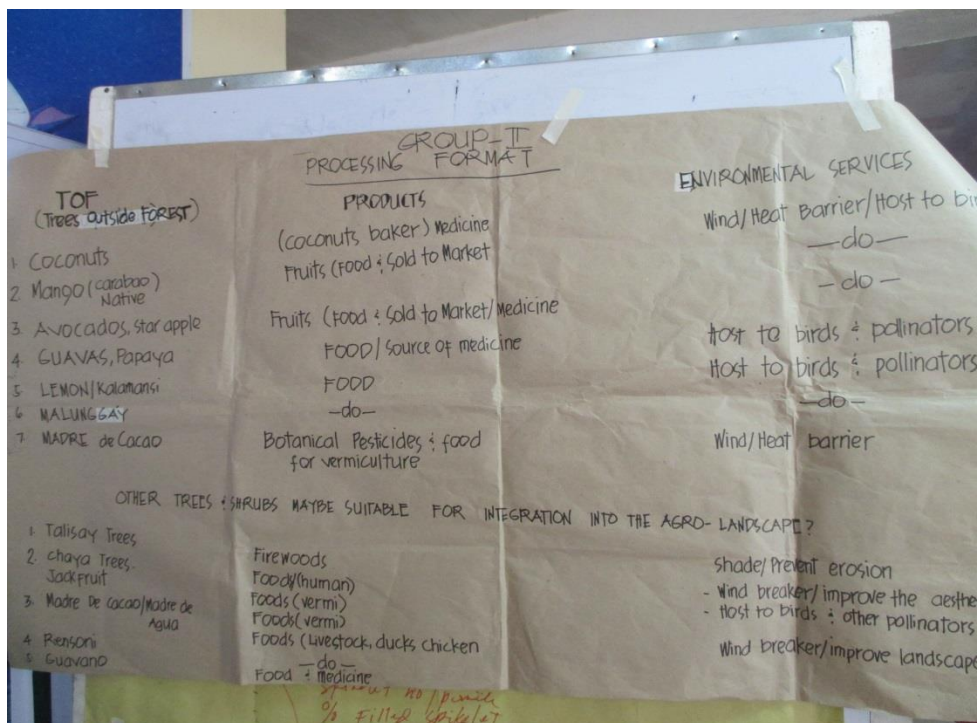 GROUP-II
PROCESSING FORMAT
TOF
(Trees Outside FOREST)
1. Coconuts
2. Mango (carabao)
Native
3. Avocados, star apple
4. GUAVAS, Papaya
5. LEMON/Kalamansi
6. MALUNGGAY
7. MADRE de Cacao
PRODUCTS
(coconuts baker) Medicine
Fruits (Food & Sold to Market
Fruits (Food & Sold to Market/Medicine
FOOD/source of medicine
FOOD
—do—
Botanical Pesticides & food
for vermiculture
ENVIRONMENTAL SERVICES
Wind/Heat Barrier/Host to
—do—
—do—
Host to birds & pollinators
Host to birds & pollinators
—do—
Wind/Heat barrier
OTHER TREES & SHRUBS MAYBE SUITABLE FOR INTEGRATION INTO THE AGRO-LANDSCAPE?
1. Talisay Trees
2. Chaya Trees.
Jackfruit
3. Madre De Cacao/Madre de
Agua
4. Rensoni
5. Guavano
Firewoods
Foods (human)
Foods (vermi)
Foods (vermi)
Foods (Livestock, ducks chicken
—do—
Food & medicine
Shade/Prevent erosion
- Wind breaker/improve the
- Host to birds & other pollinators
Wind breaker/improve landscape
% Filled